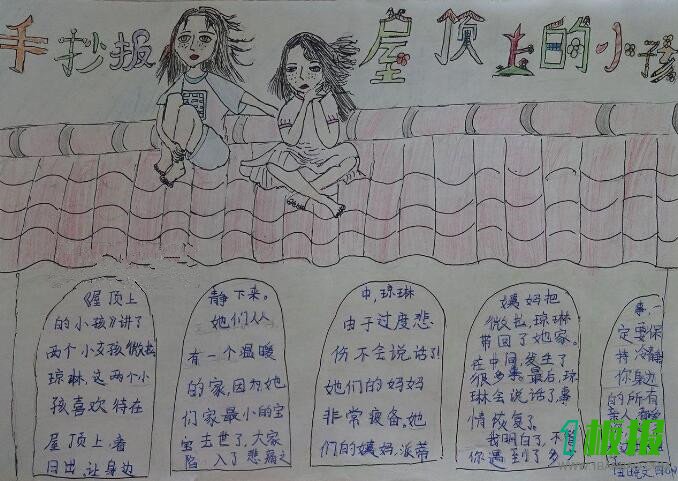 手抄报
屋顶上的小孩
《屋顶上
的小孩》讲了
两个小女孩微拉
琼琳,这两个小
孩喜欢待在
屋顶上,看
日出,让身边
静下来。
她们从
有一个温暖
的家,因为她
们家最小的宝
宝去世了,大家
陷入了悲痛之
中,琼琳
由于过度悲
伤不会说话了!
她们的妈妈
非常疲备。她
们的姨妈,派蒂
姨妈把
微拉,琼琳
带回了她家。
在中间,发生了
很多事最后,琼
琳会说话了,事
情恢复了。
我明白了,不管
你遇到了多
事,一
定要保
持冷静
你身边
的所有
亲人
1板报